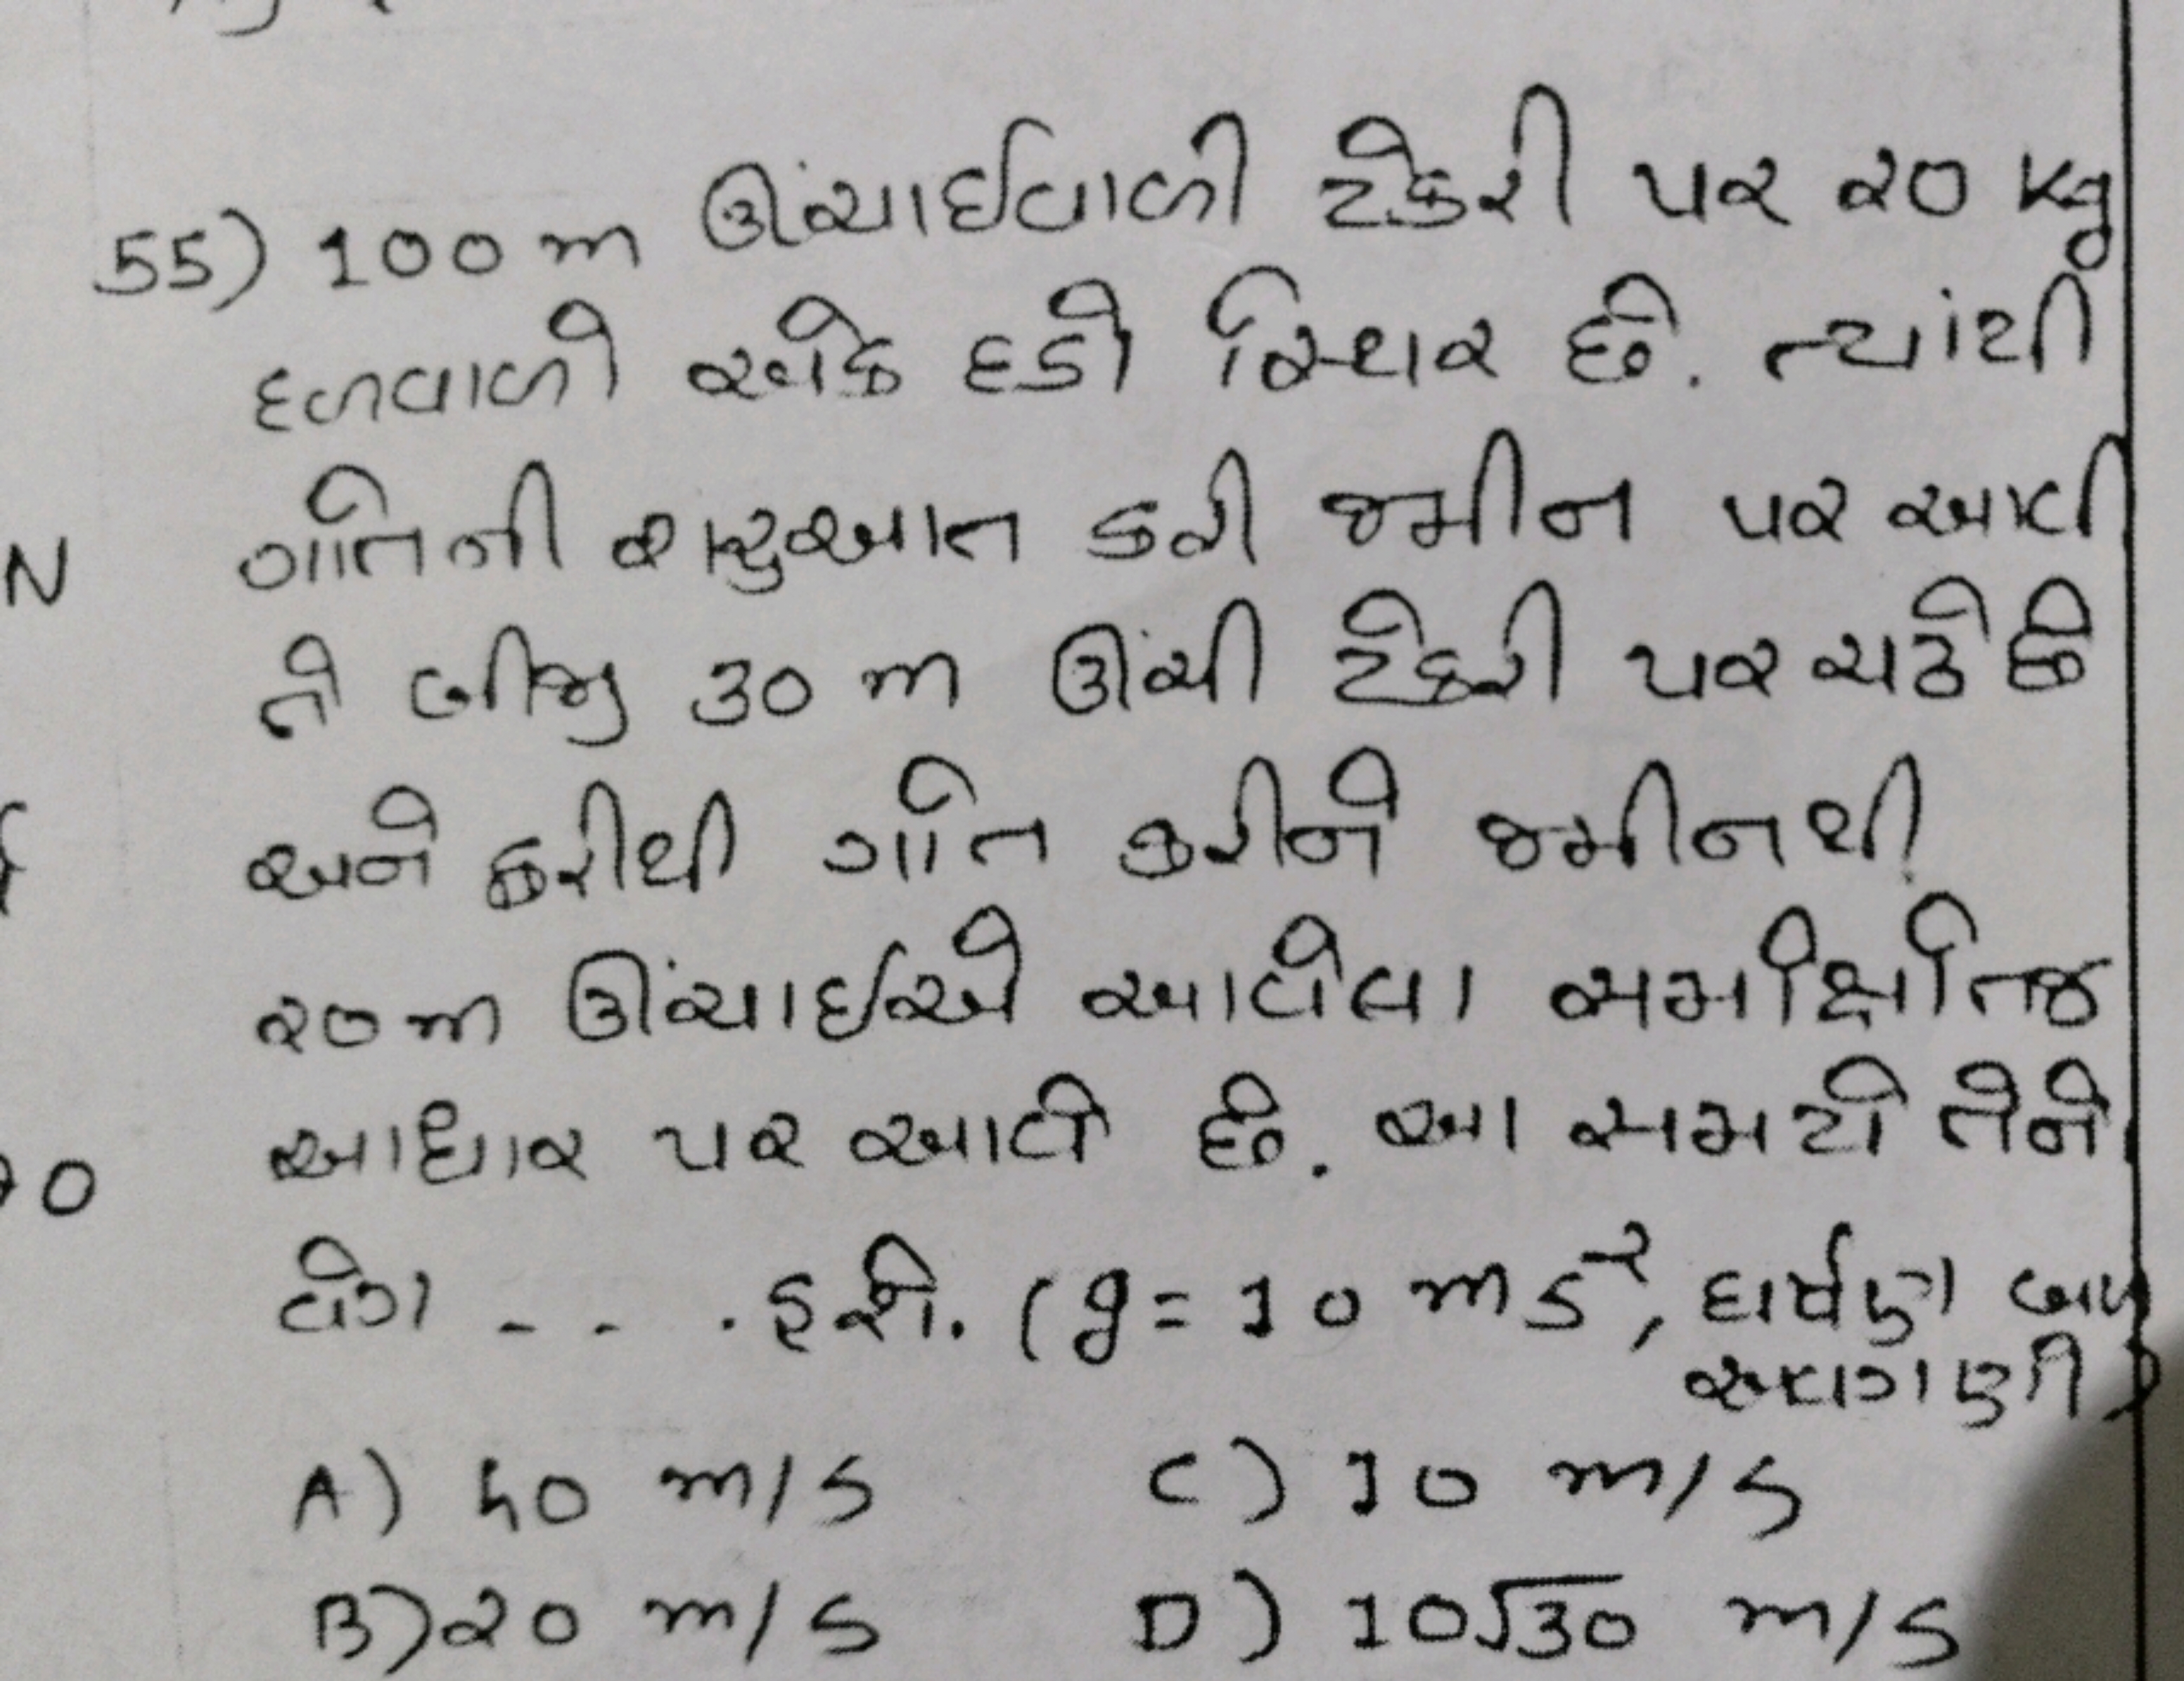 55) 100 m ઊંચાઈવાળી ટેકરી પર ૨0 kg
દળવાળો એક દડો સ્થિર છે. ત્યાંથી
N ગતિની શરુઆત કરી જમીન પર આવી
તે બીજી 30 m ઊંચી ટેકરી પર ચઢે છે
અને ફરીથી ગતિ કરીને જમીનથી
૨0 m ઊંચાઈએ આવેલા સમક્ષિતિજ
આધાર પર આવે છે. આ સમયે તેને
0 વેગ - - . હશે. (g = 10 ms⁻², ઘર્ષણ બળ
અવગણી)
A) 40 m/s C) 10 m/s
B) ૨0 m/s D) 10√30 m/s